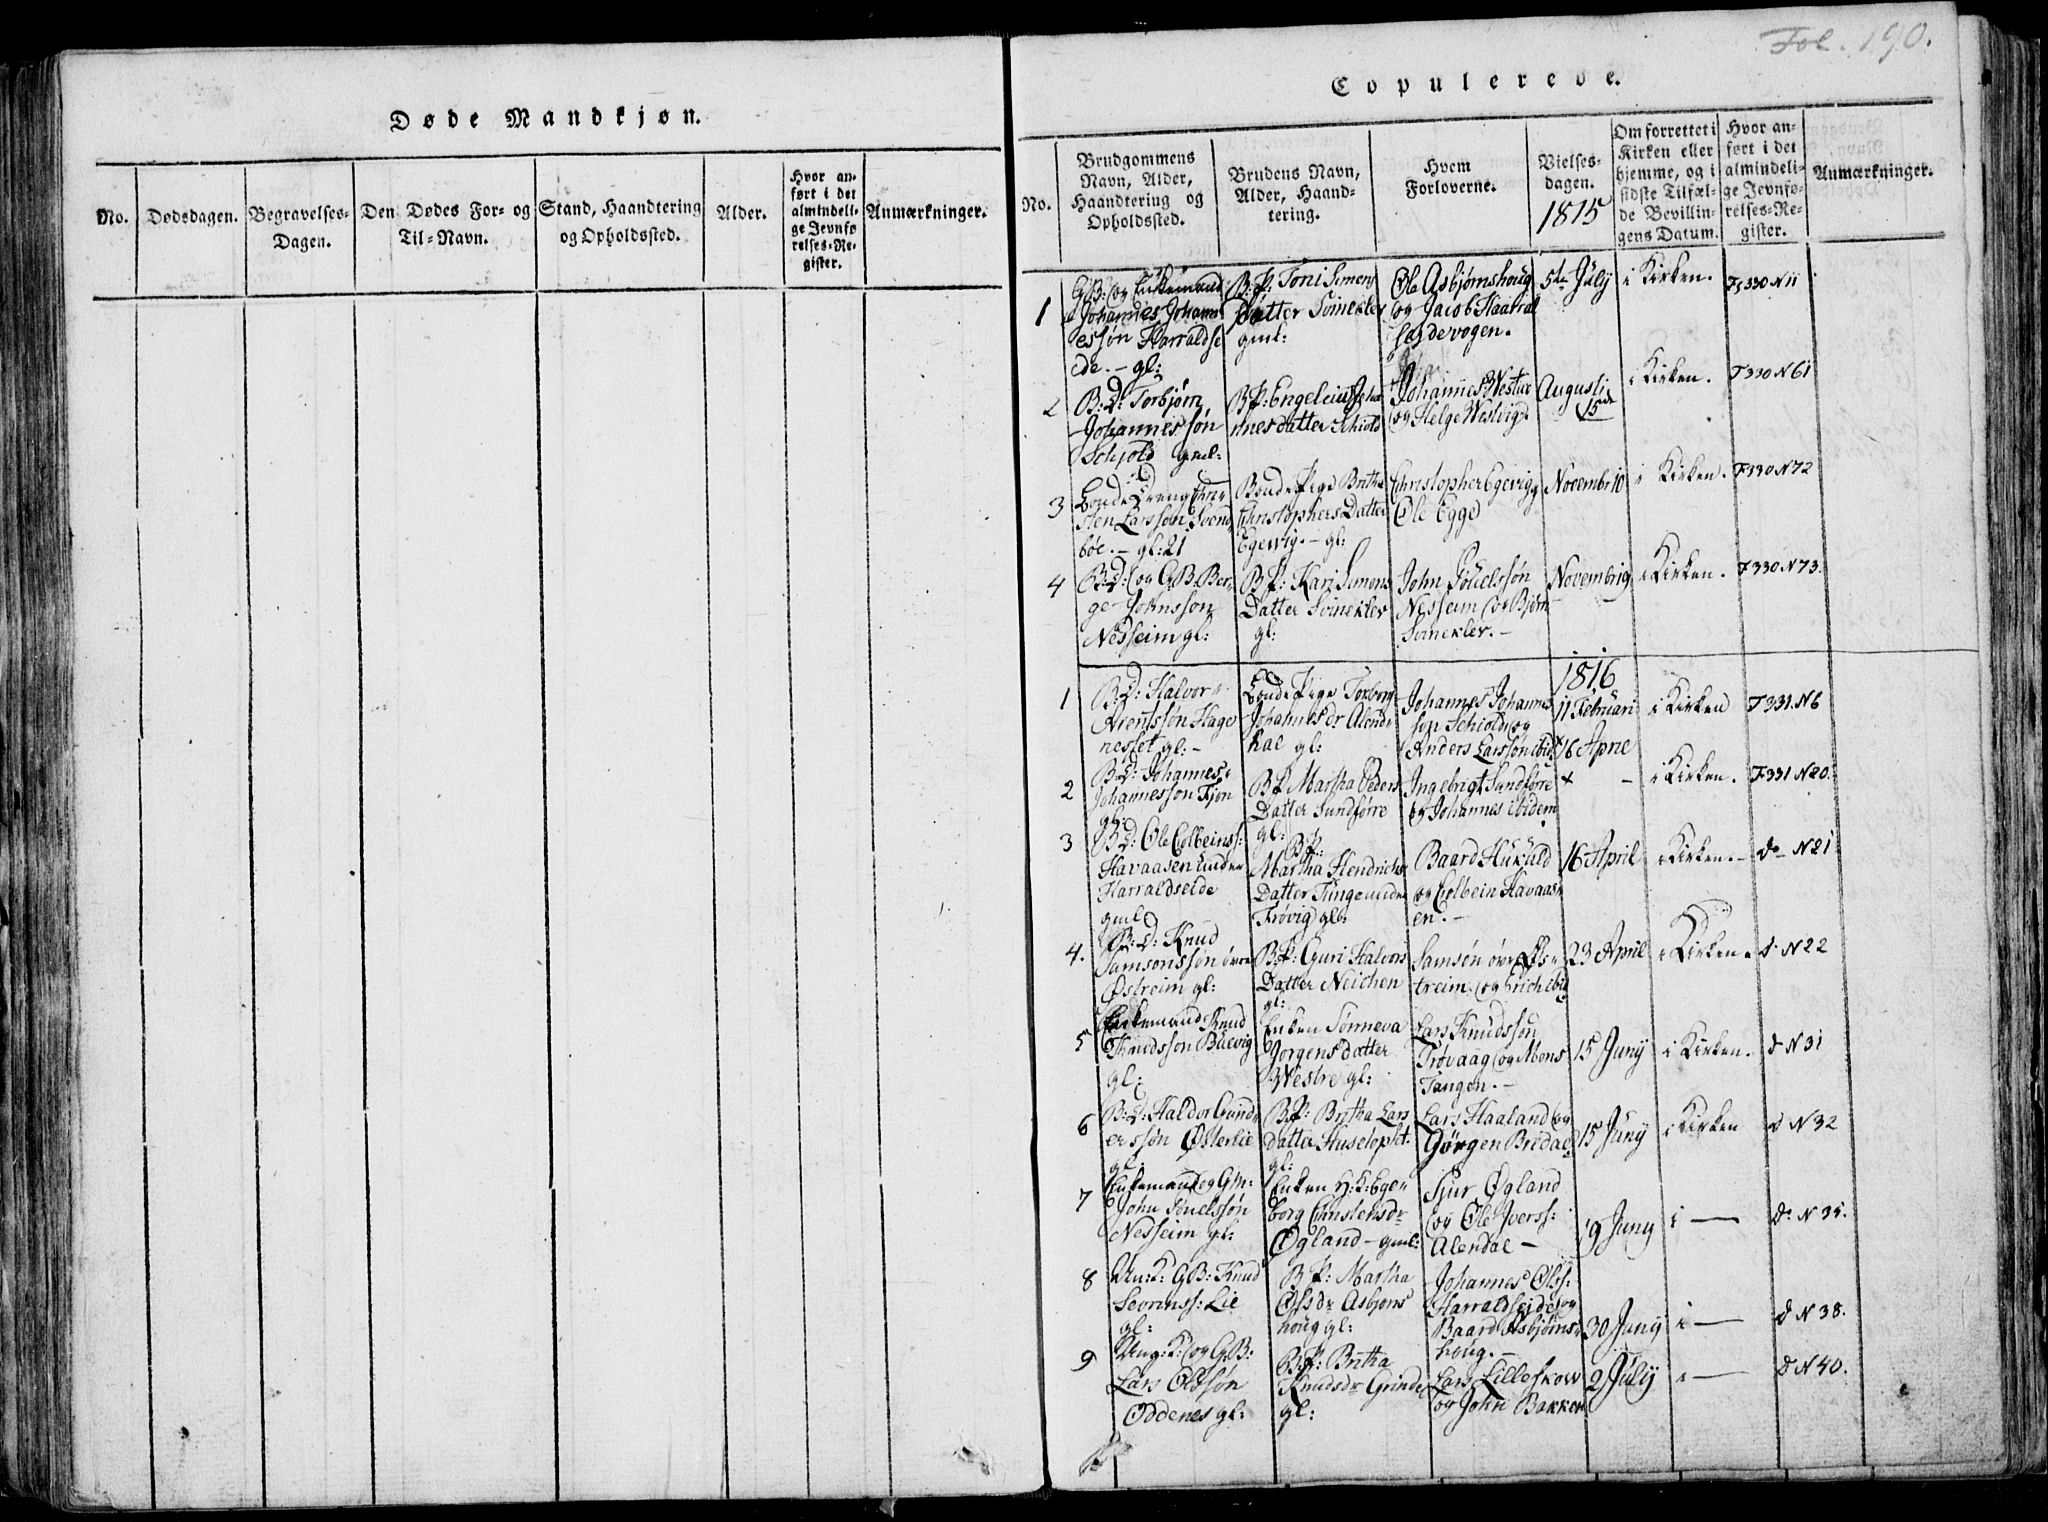 Fol. 190.
Døde Mandkjøn.
No.
Dødsdagen.
Begravelses-
Dagen.
Den Dødes For- og
Til-Navn.
Stand, Haandtering
og Opholdssted.
Alder.
Hvor an-
ført i det
almindeli-
ge Jevnfø
relses-Re-
gister.
Anmærkninger.
Copulerede.
No.
Brudgommens
Navn, Alder,
Haandtering og
Opholdssted.
Brudens Navn,
Alder, Haand-
tering.
Hvem
Forloverne.
Vielses-
dagen.
1815
Om forrettet i
Kirken eller
hjemme, og i
sidste Tilfæl-
de Bevillin-
gens Datum.
Hvor an-
ført i det
almindeli-
ge Jevnfø-
relses-Re-
gister.
Anmærkninger.
1
GB: og Enkemand
Johannes Johann
essøn Harraldse
ide. - gl:
B:P: Toni Simens
Datter Svinekler
gml:
Ole Asbjørnshoug
og Jacob Haarral
seidevogen.
5te July
i Kirken.
F 330 N 11
2
B:D: Torbjørn
Johannessøn
Schjold gml:
B.P: Engelein Joha
nnesdatter Schiold
Johannes Westvig
og Helge Westvig
Augusti
15de
i Kirken.
F 330 N 61
3
Bonde Dreng Chri
sten Larssøn Svend
bøe. - gl: 21
Bonde Pige Britha
Christophers Datter
Egervig. - gl:
Christopher Egevig
Ole Egge
Novembr 10
i Kirken.
F 330 N 72
4
B:D: og G.B. Ber
ge Johnssøn
Nesseim gl:
B P: Kari Simons
Datter Svinekler
gl:
John Pouelssøn
Nesseim og Bjørn
Svinekler. -
Novembrig
i Kirken.
F 330 N 73.
1816
1
B:D: Halvor
Arentssøn Hage
nesset gl: -
Bonde Pige Torborg
Johannesdr Alend
hal gl:
Johannes Johannes
søn Schiold og
Anders Larssøn ibid
11 Februari
i Kirken
F 331. N 6
2
B:D: Johannes
Johannessøn Fjon
gl:
B P Martha Peders
Datter Sundførre
gl:
Ingebrigt Sundførre
og Johannes ibidem
16 April
+ -
i Kirken.
F 331 N 20.
3
B:D: Ole Colbeinss:
Havaasen under
Harraldseide
gml
B P:
Martha Hendrichs
Datter Tunge under
Trøvig gl:
Baard Hukuld
og Colbein Havaas
en. -
16 April
i Kirken. -
do N 21
4.
B:D: Knud
Samsonssøn övre
Østreim gl:
B:P: Guri Halvors
Datter Neichen
gl:
Samsøn øvre Øs-
treim og Erich ibid
23 April
i Kirken.
d. N 22
5
Enkemand Knud
Knudssøn Buevig
gl:
Enken Sønneva
Jørgens datter
Westre gl:
Lars Knudssøn
Trøvaag og Mons
Tangen. -
15 Juny
i Kirken.
d N 31
6
B:D: Haldor Gund
erssøn Østerlie
gl:
B P: Britha Lars
datter Huseløpset.
gl:
Lars Haaland og
Gørgen Bredal
15 Juny
i Kirken
d N 32
7
Enkemand og GM:
John Pouelssøn
Nesseim gl:
Enken H:K: Ege
borg Christensdr
Øgland - gml:
Sjur Øgland
og Ole Iverss:
Alendal -
19 Juny
i —
do N 35.
8
Un:K: GB: Knud
Sevrinss: Lie
gl:
B P: Martha
Olsdr Asbjørns
houg gl:
Johannes Olss:
Harraldseide og
Baard Asbjørns
houg. -
30 Juny
i —
d N 38.
9
Ung:K: og GB:
Lars Olssøn
Oddenes gl:
B:P: Britha
Knudsdr Grinde
gl:
Lars Lilleskow
og John Bakken
2 July
i —
d N 40.